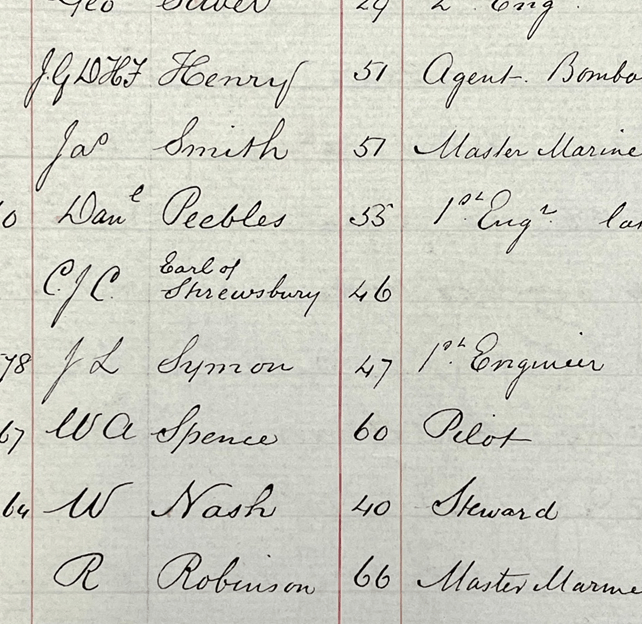 Geo Silver 29 2 Eng.
J G D H F Henry 51 Agent. Bomba
Jas Smith 51 Master Marine
0 Danl Peebles 55 1st Engr las
C. J C. Earl of
Shrewsbury 46
78 J L Symon 47 1st Engineer
67 W A Spence 60 Pilot
64 W Nash 40 Steward
R Robinson 66 Master Marine